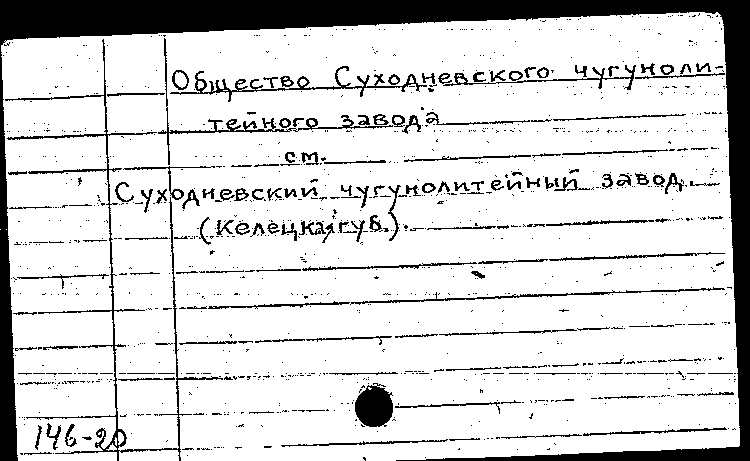 Общество Суходневского чугуноли-
тейного завода
см.
Суходневский чугунолитейный завод.
(Келецкая губ.).
146-20